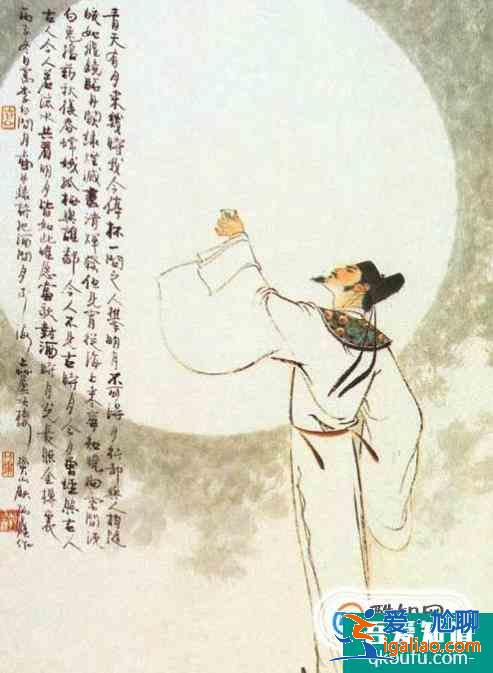 青天有月来幾時我今停杯一問之人攀明月不可得月行卻與人相隨
皎如飛鏡臨丹闕綠煙滅盡清輝發但見宵從海上來寧知曉向雲間沒
白兔搗藥秋復春嫦娥孤栖與誰鄰今人不見古時月今月曾經照古人
古人今人若流水共看明月皆如此唯願當歌對酒時月光長照金樽裏
爱·尬聊
igaliao.com
qk5ufu.com